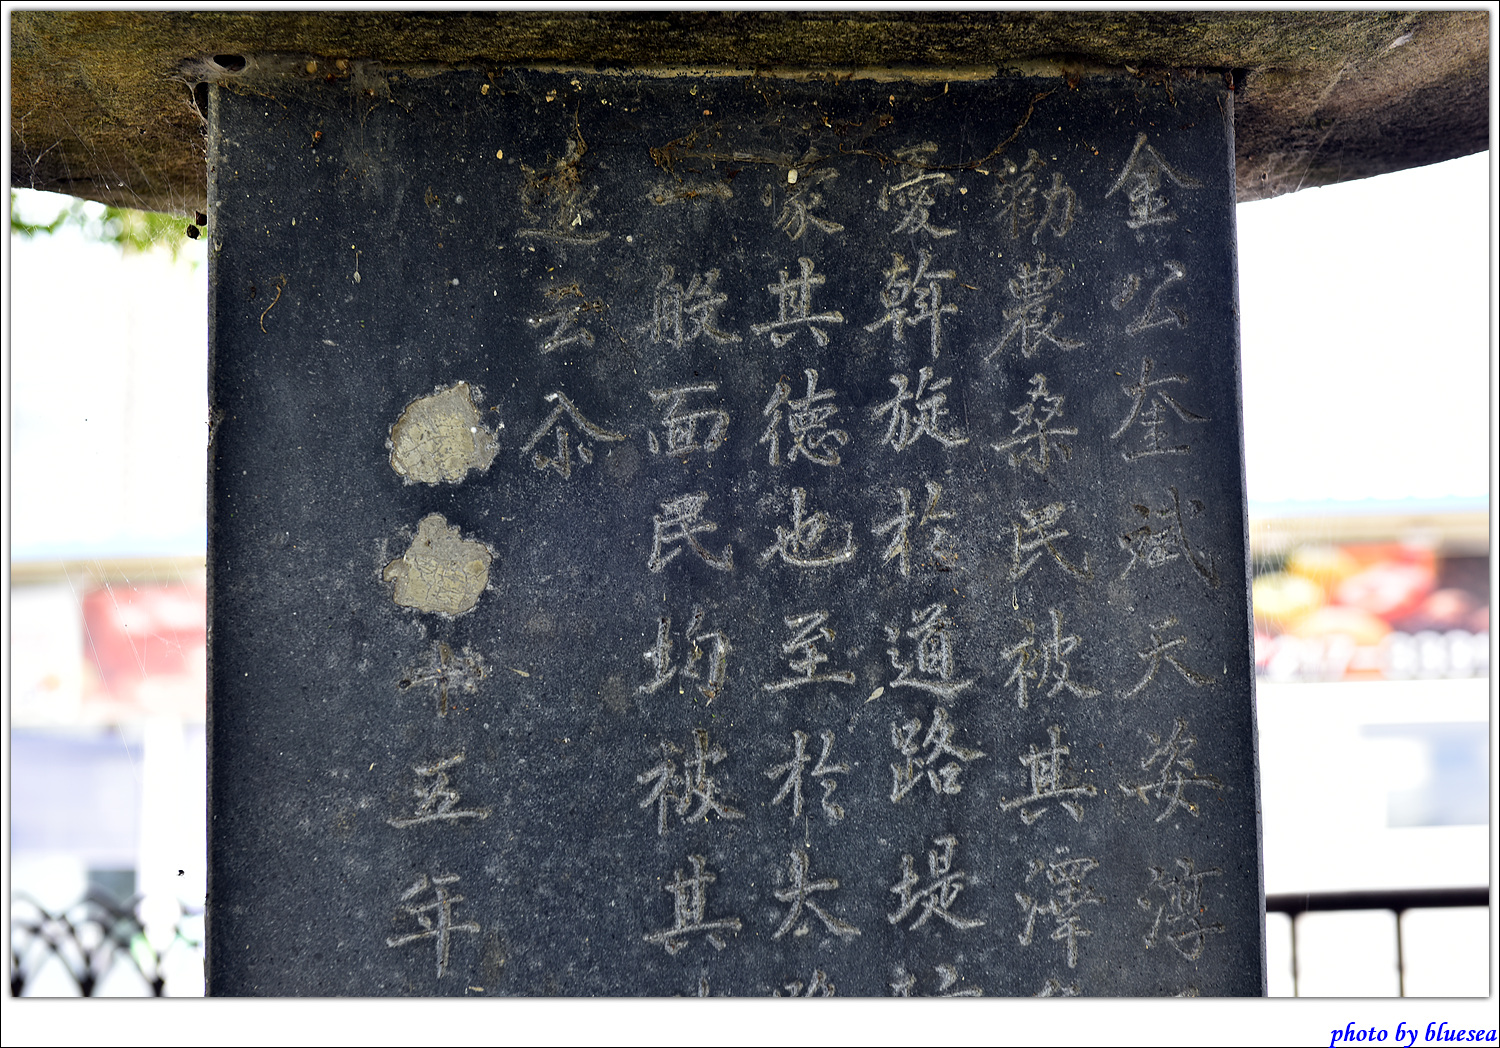 金公奎斌天姿淳
勸農桑民被其澤
愛斡旋於道路堤
家其德也至於太
一般面民均被其
迷云尒
十五年
photo by bluesea